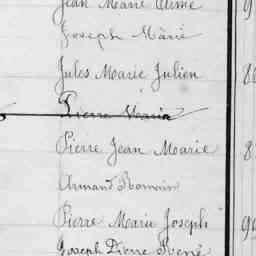 Jean Marie Aimé
Joseph Marie
Jules Marie Julien
Pierre Marie
Pierre Jean Marie
Armand Romain
Pierre Marie Joseph
Joseph Pierre René